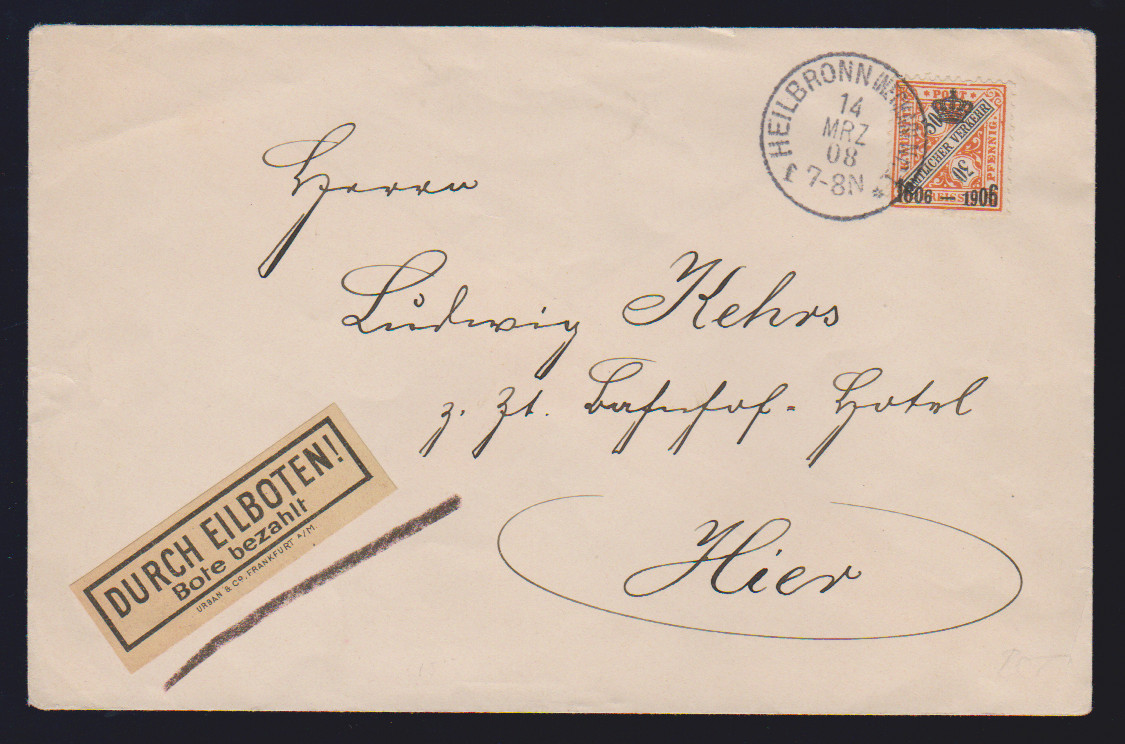 HEILBRONN (NECKAR)
14
MRZ
08
7-8N
POST
30
AMTLICHER VERKEHR
30
PFENNIG
1806 — 1906
Herrn
Ludwig Kehrs
z. Zt. Bahnhof-Hotel
Hier
DURCH EILBOTEN!
Bote bezahlt
URBAN & Co, FRANKFURT A/M.